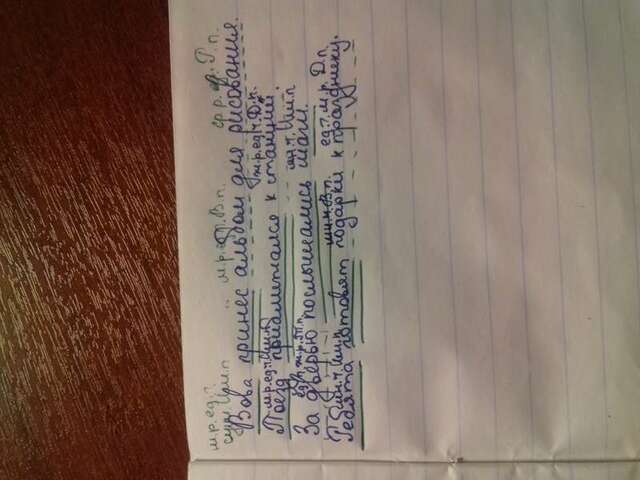 м.р. ед.ч.
сущ. И.п. м.р. В.п. ср.р. Р.п.
Вова принес альбом для рисования.
м.р. ед.ч. И.п. ж.р. ед.ч. Д.п.
Поезд приближался к станции.
ед.ч. ж.р. Т.п. мн.ч. И.п.
За дверью послышались шаги.
мн.ч. И.п. мн.ч. В.п. ед.ч. м.р. Д.п.
Ребята готовят подарки к празднику.